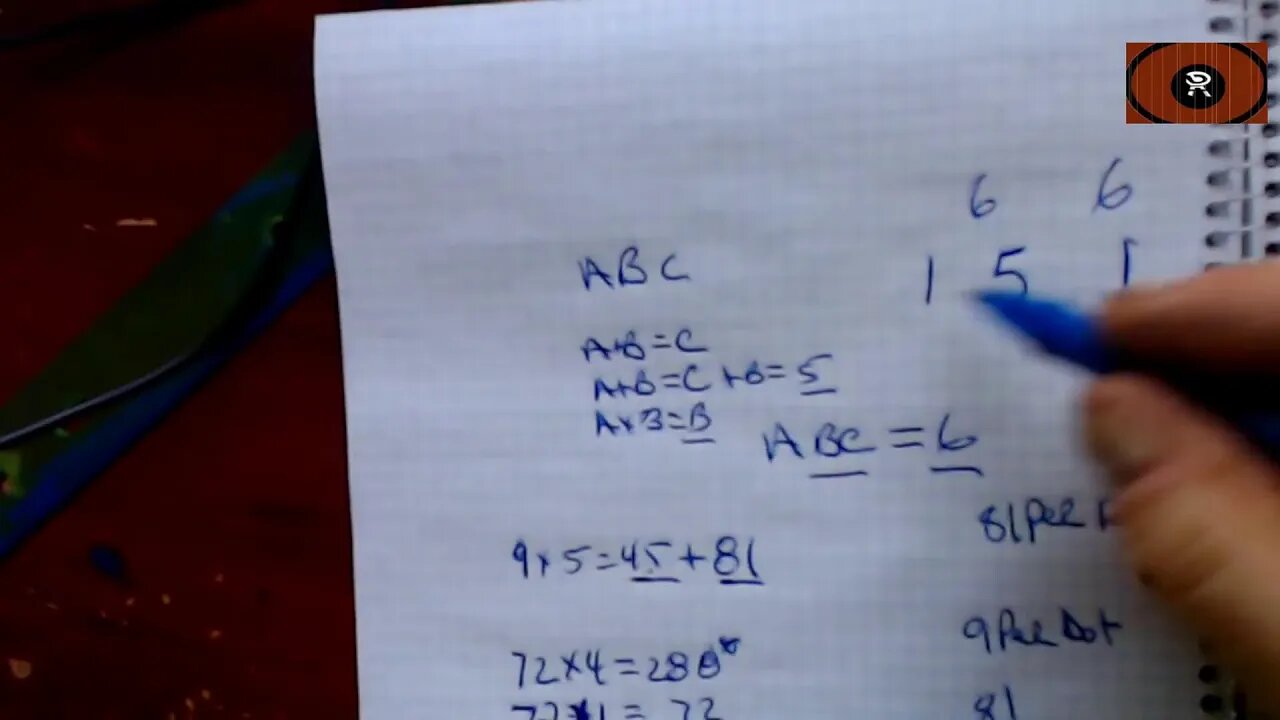 6 6
ABC
1 5 1
A+B=C
A+B=C+B=5
A+B=B
ABC=6
81 Per
9x5=45+81
9 Per Dot
72x4=288*
72x1=72
81